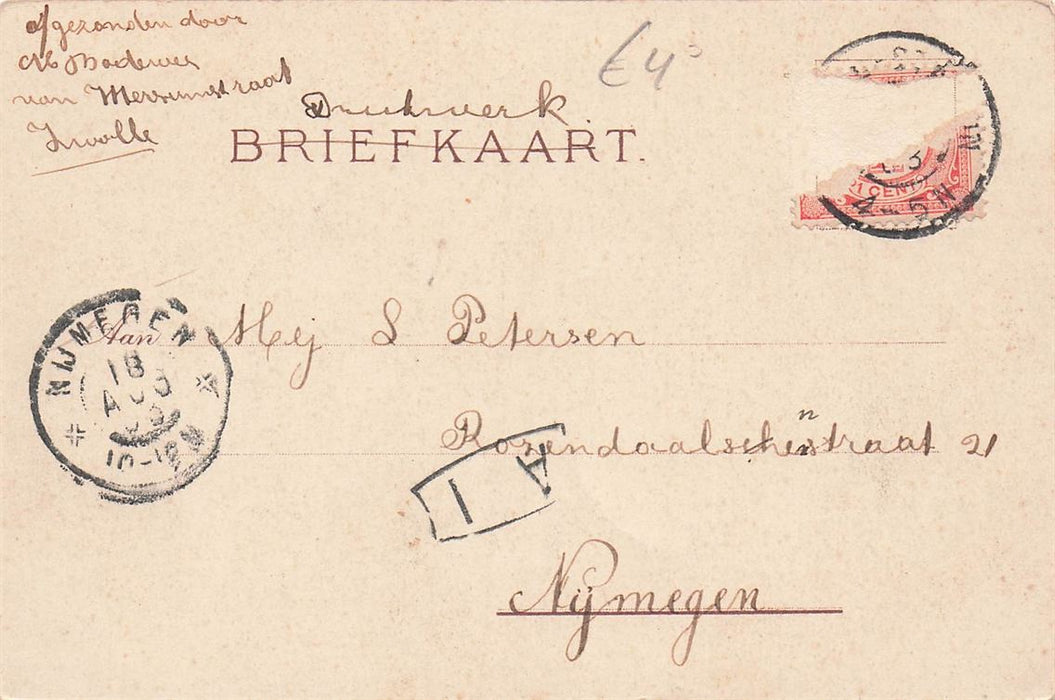 Afgezonden door
M
van Merssumstraat
Zwolle
€ 4
Drukwerk.
BRIEFKAART.
1 CENT
3
4-5N
NIJMEGEN
18
AUG
03
10-12N
Aan Mej S Petersen
Rozendaalschenstraat 21
A 1
Nijmegen